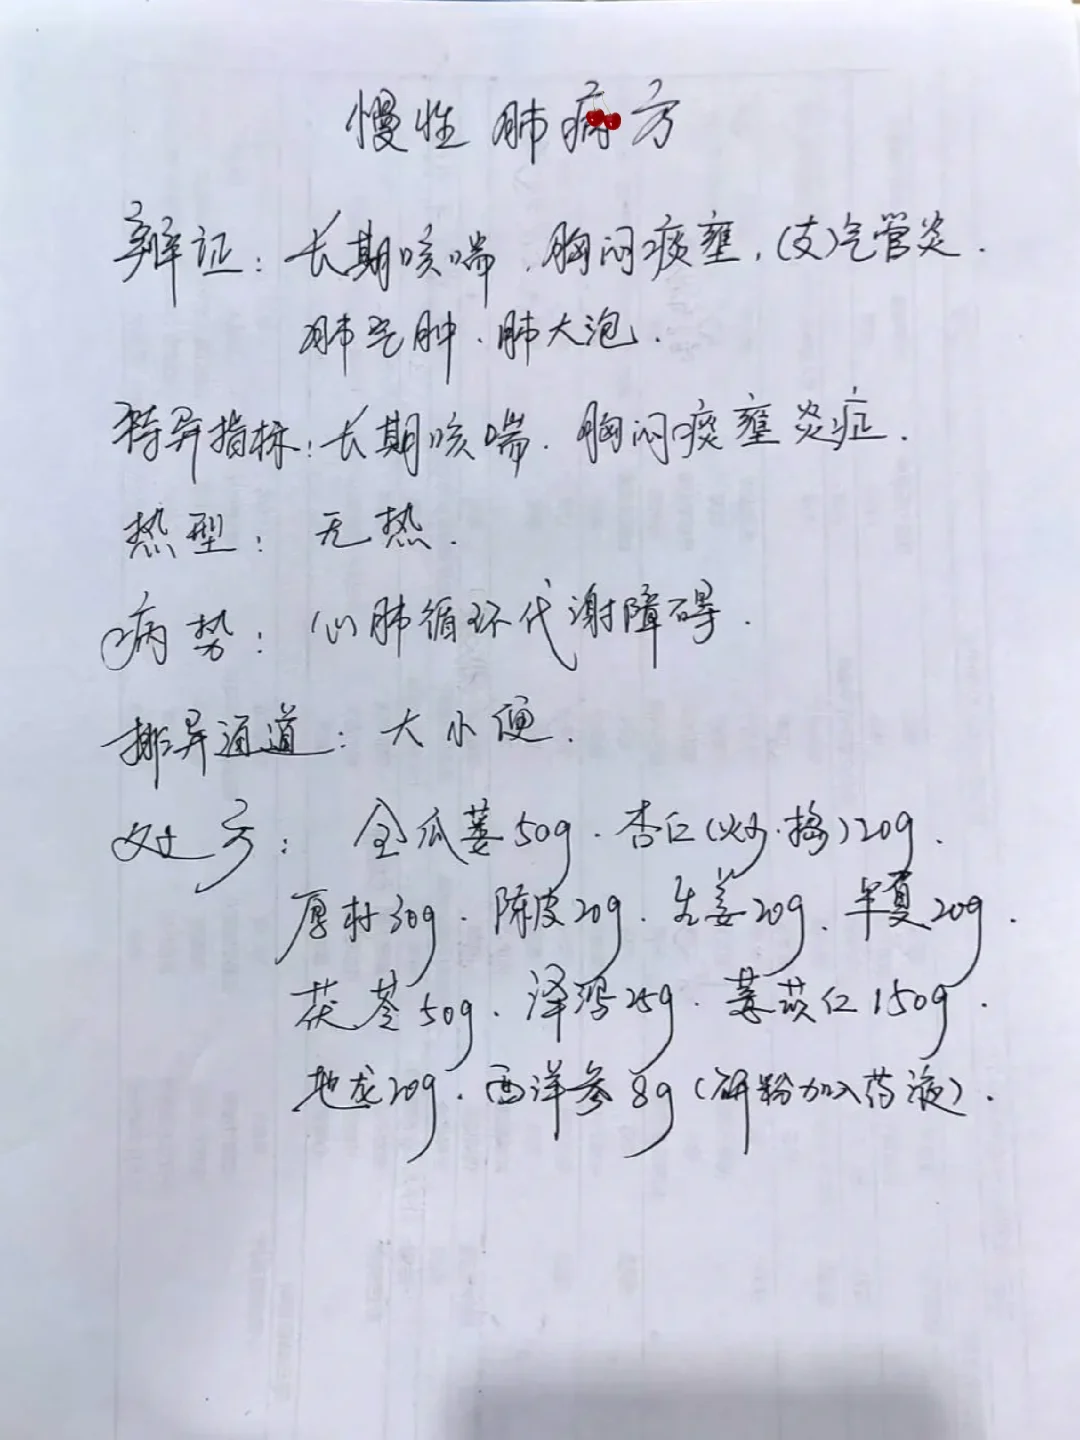 慢性肺病方
辩证：长期咳喘，胸闷痰壅，(支)气管炎.
肺气肿、肺大泡.
特异指标：长期咳喘、胸闷痰壅炎症.
热型：无热.
病势：心肺循环代谢障碍.
排异通道：大小便.
处方：全瓜蒌50g、杏仁(炒·捣)20g、
厚朴30g、陈皮20g、生姜20g、半夏20g、
茯苓50g、泽泻25g、薏苡仁150g、
地龙20g、西洋参8g(研粉加入药液).